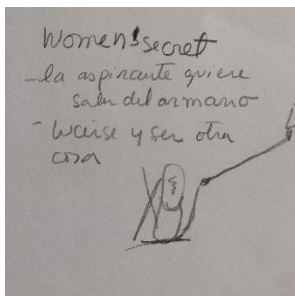 Women'secret
- la aspirante quiere
salir del armario
- lucirse y ser otra
cosa